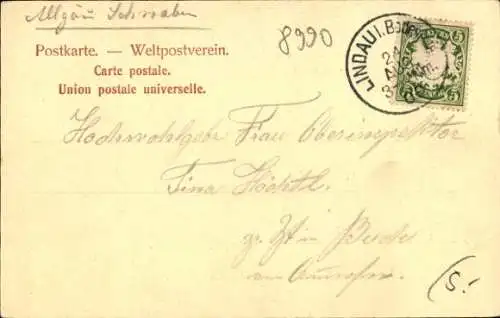 Allgäu Schwaben
8990
Postkarte. — Weltpostverein.
Carte postale.
Union postale universelle.
LINDAU i. Bod
5 5
Hochwohlgeb. Frau Oberinspektor
Tina
z. Zt. in
am
(S!